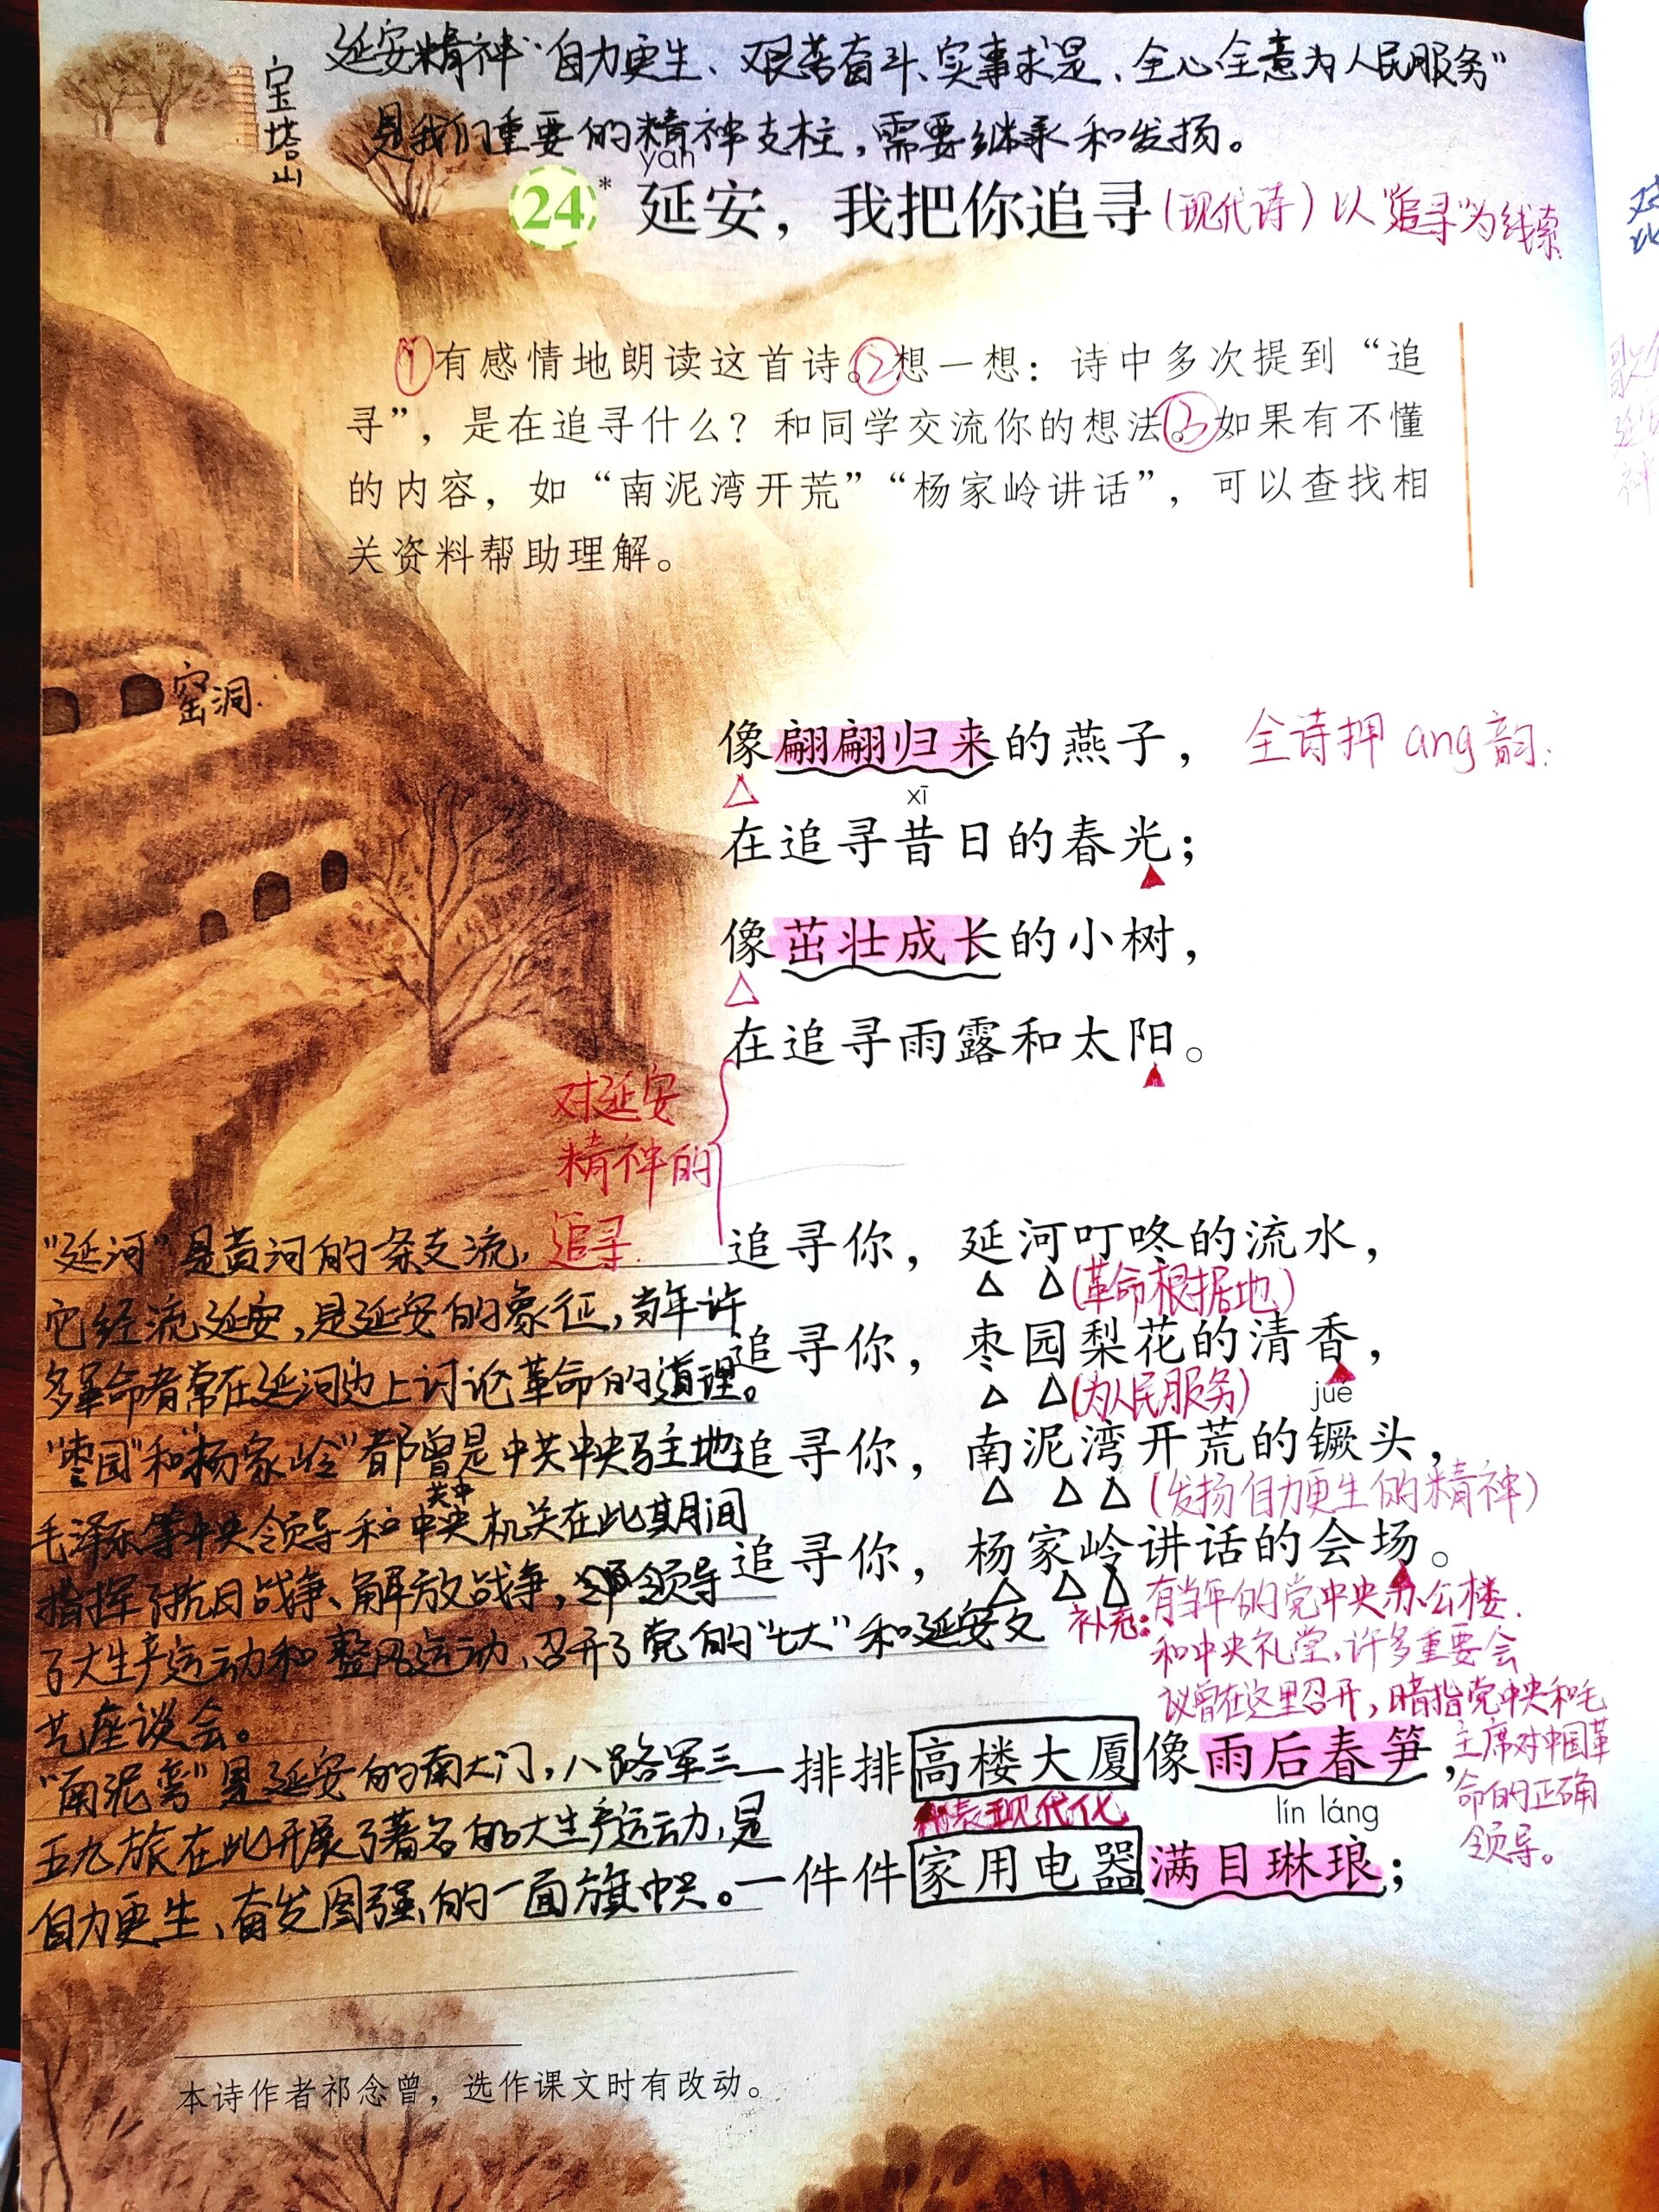 延安精神“自力更生、艰苦奋斗、实事求是、全心全意为人民服务”
是我们重要的精神支柱，需要继承和发扬。
宝塔山
yán
24* 延安，我把你追寻(现代诗) 以“追寻”为线索.
①有感情地朗读这首诗。②想一想：诗中多次提到“追
寻”，是在追寻什么？和同学交流你的想法。③如果有不懂
的内容，如“南泥湾开荒”“杨家岭讲话”，可以查找相
关资料帮助理解。
窑洞.
像翩翩归来的燕子， 全诗押 ang 韵.
xī
在追寻昔日的春光；
像茁壮成长的小树，
在追寻雨露和太阳。
对延安
精神的
追寻.
追寻你，延河叮咚的流水，
(革命根据地)
追寻你，枣园梨花的清香，
(为人民服务)
jué
追寻你，南泥湾开荒的镢头，
(发扬自力更生的精神)
追寻你，杨家岭讲话的会场。
补充: 有当年的党中央办公楼.
和中央礼堂,许多重要会
议曾在这里召开,暗指党中央和毛
主席对中国革
命的正确
领导。
“延河”是黄河的一条支流,
它经流延安,是延安的象征,当年许
多革命者常在延河边上讨论革命的道理。
“枣园”和“杨家岭”都曾是中共中央驻地
毛泽东等中央领导和中共中央机关在此期间
指挥了抗日战争、解放战争, 领导
了大生产运动和整风运动、召开了党的“七大”和延安文
艺座谈会。
“南泥弯”是延安的南大门,八路军三
五九旅在此开展了著名的大生产运动,是
自力更生、奋发图强的一面旗帜。
一排排高楼大厦像雨后春笋，
代表现代化
lín láng
一件件家用电器满目琳琅；
本诗作者祁念曾，选作课文时有改动。